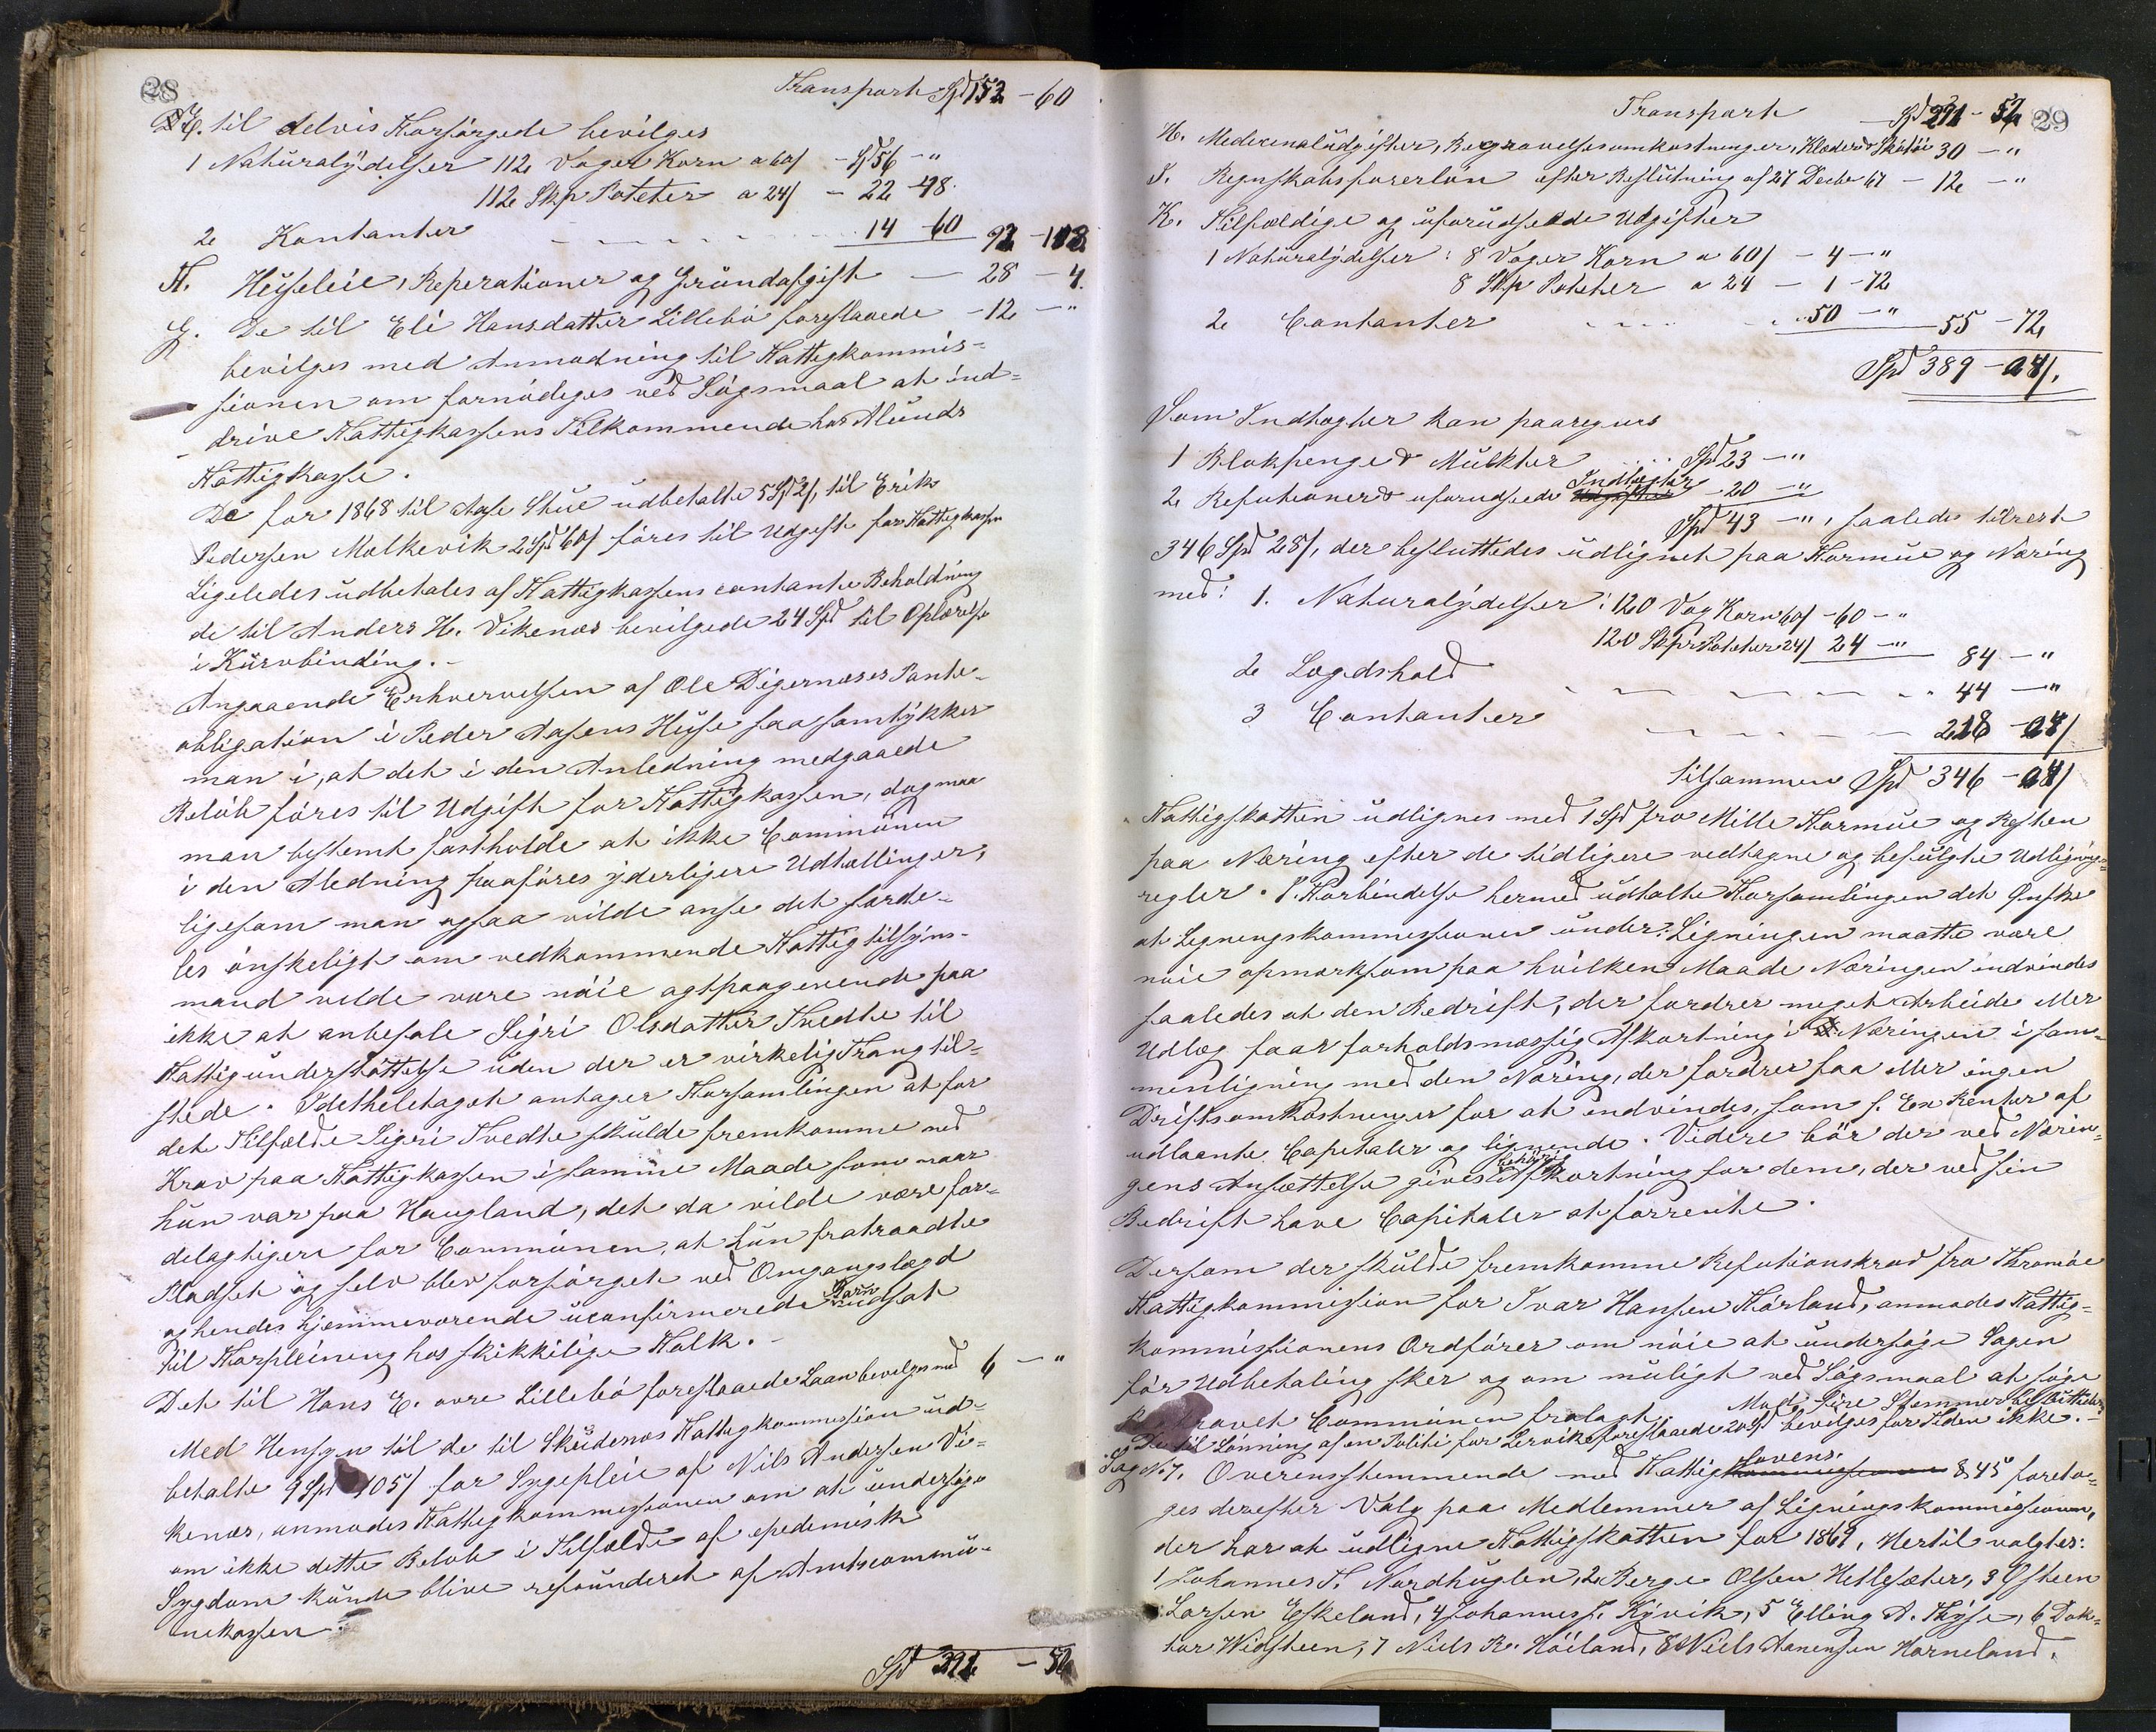 28
Transport Spd 152 - 60
E. til delvis Forsørgede bevilges
1 Naturalydelser 112 Voger Korn a 60/ - Spd 56 - "
112 Skp Poteter a 24/ - 22 - 48.
2 Kontanter 14 60 92 - 108
F. Huseleie, Reperationer og Grundafgift - 28 - 4.
G. De til Eli Hansdatter Lillebø foreslaaede - 12 - "
bevilges med Anmodning til Fattigkommis-
sionen om fornødiges ved Søgsmaal at ind-
drive Fattigkassens Tilkommende hos Alunds
Fattigkasse.
De for 1868 til Aase Stue udbetalte 5 Spd 2/, til Erik
Pedersen Molkevik 2 Spd 60/ føres til Udgift for Fattigkassen
Ligeledes udbetales af Fattigkassens contante Beholdning
de til Anders H. Vikenæs bevilgede 24 Spd til Oplærelse
i Kurvbinding. -
Angaaende Erhvervelsen af Ole Digernæses Pante-
obligation i Peder Aasens Huse saa samtykker
man i, at det i den Anledning medgaaede
Beløb føres til Udgift for Fattigkassen, dog maa
man bestemt fastholde at ikke Communen
i den Aledning paaføres yderligere Udtællinger,
ligesom man ogsaa vilde anse det særde-
les ønskeligt om vedkommende Fattigtilsyns-
mand vilde være nøie agtpaagivende paa
ikke at anbefale Sigri Olsdatter Tvedte til
Fattigunderstøttelse uden der er virkelig Trang til-
stede. Idetheletaget antager Forsamlingen at for
det Tilfælde Sigri Tvedte skulde fremkomme med
Krav paa Fattigkassen i samme Maade som naar
hun var paa Haugland, det da vilde være for-
delagtigere for Communen, at hun fratraadte
Pladset og selv blev forsørget ved Omgangslægd
og hendes hjemmeværende uconfirmerede Børn udsat
til Forpleining hos skikkelige Folk. -
Det til Hans E. øvre Lillebø foreslaaede Laan bevilges med 6 - "
Med Hensyn til de til Skudenæs Fattigkommission ud-
betalte 9 Spd 105/ for Sygepleie af Nils Andersen Vi-
kenæs, anmodes Fattigkommissionen om at undersøge
om ikke dette Beløb i Tilfælde af epedemisk
Sygdom kunde blive refounderet af Amtscommu-
nekassen.
Spd 291 - 52
29
Transport Spd 291 - 52
H. Medicinaludgifter, Begravelsesomkostninger, Klæder & Skotøi 30 - "
I. Regnskabsførerløn efter Beslutning af 27 Decbr 67 - 12 - "
K. Tilfældige og uforudseede Udgifter
1 Naturalydelser: 8 Voger Korn a 60/ - 4 - "
8 Skp Poteter a 24 - 1 - 72
2 Contanter 50 - " 55 - 72
Spd 389 - 28/.
Som Indtægter kan paaregnes
1 Blokpenge & Mulkter Spd 23 - "
2 Refutioner & uforudseede Udgifter Indtægter - 20 - "
Spd 43 - ", saaledes tilrest
346 Spd 28/, der besluttedes udlignet paa Formue og Næring
med: 1. Naturalydelser: 120 Vog Korn 60/ - 60 - "
120 Skpr Poteter 24/ 24 - " 84 - "
2 Lægdshold 44 - "
3 Contanter 218 - 28/
tilsammen Spd 346 - 28/
Fattigskatten udlignes med 1 Spd pro Mille Formue og Resten
paa Næring efter de tidligere vedtagne og befulgte Udlignings-
regler. I Forbindelse hermed udtalte Forsamlingen det Ønske
at Ligningskommissionen under Ligningen maatte være
nøie opmærksom paa hvilken Maade Næringen indvindes
saaledes at den Bedrift, der fordrer meget Arbeide eller
Udlæg faar forholdsmæssig Afkortning i Næringen i sam-
menligning med den Næring, der fordrer faa eller ingen
Driftsomkostninger for at indvindes, som f. Ex Renter af
udlaante Capitaler og lignende. Videre bør der ved Nærin-
gens Ansættelse gives behørig Afkortning for dem, der ved sin
Bedrift have Capitaler at forrente.
Dersom der skulde fremkomme Refutionskrav fra Thromøe
Fattigkommission for Ivar Hansen Førland, anmodes Fattig-
kommissionens Ordfører om nøie at undersøge Sagen
før Udbetaling sker og om muligt ved Søgsmaal at søge
Kravet Communen fralagt. Mod fire Stemmer besluttedes
De til Lønning af en Politi for Lervik foreslaaede 20 Spd bevilges for Tiden ikke. -
Sag No 7. Overensstemmende med Fattigkommissionen lovens § 45 foreta-
ges derefter Valg paa Medlemmer af Ligningskommissionen,
der har at udligne Fattigskatten for 1869, Hertil valgtes:
1 Johannes T. Nordhuglen, 2 Berge Olsen Hetlesæter, 3 Osteen
Larsen Eskeland, 4 Johannes J. Kyvik, 5 Elling A. Thyse, 6 Dok-
tor Widsteen, 7 Niels R. Høiland, 8 Niels Aanensen Horneland.